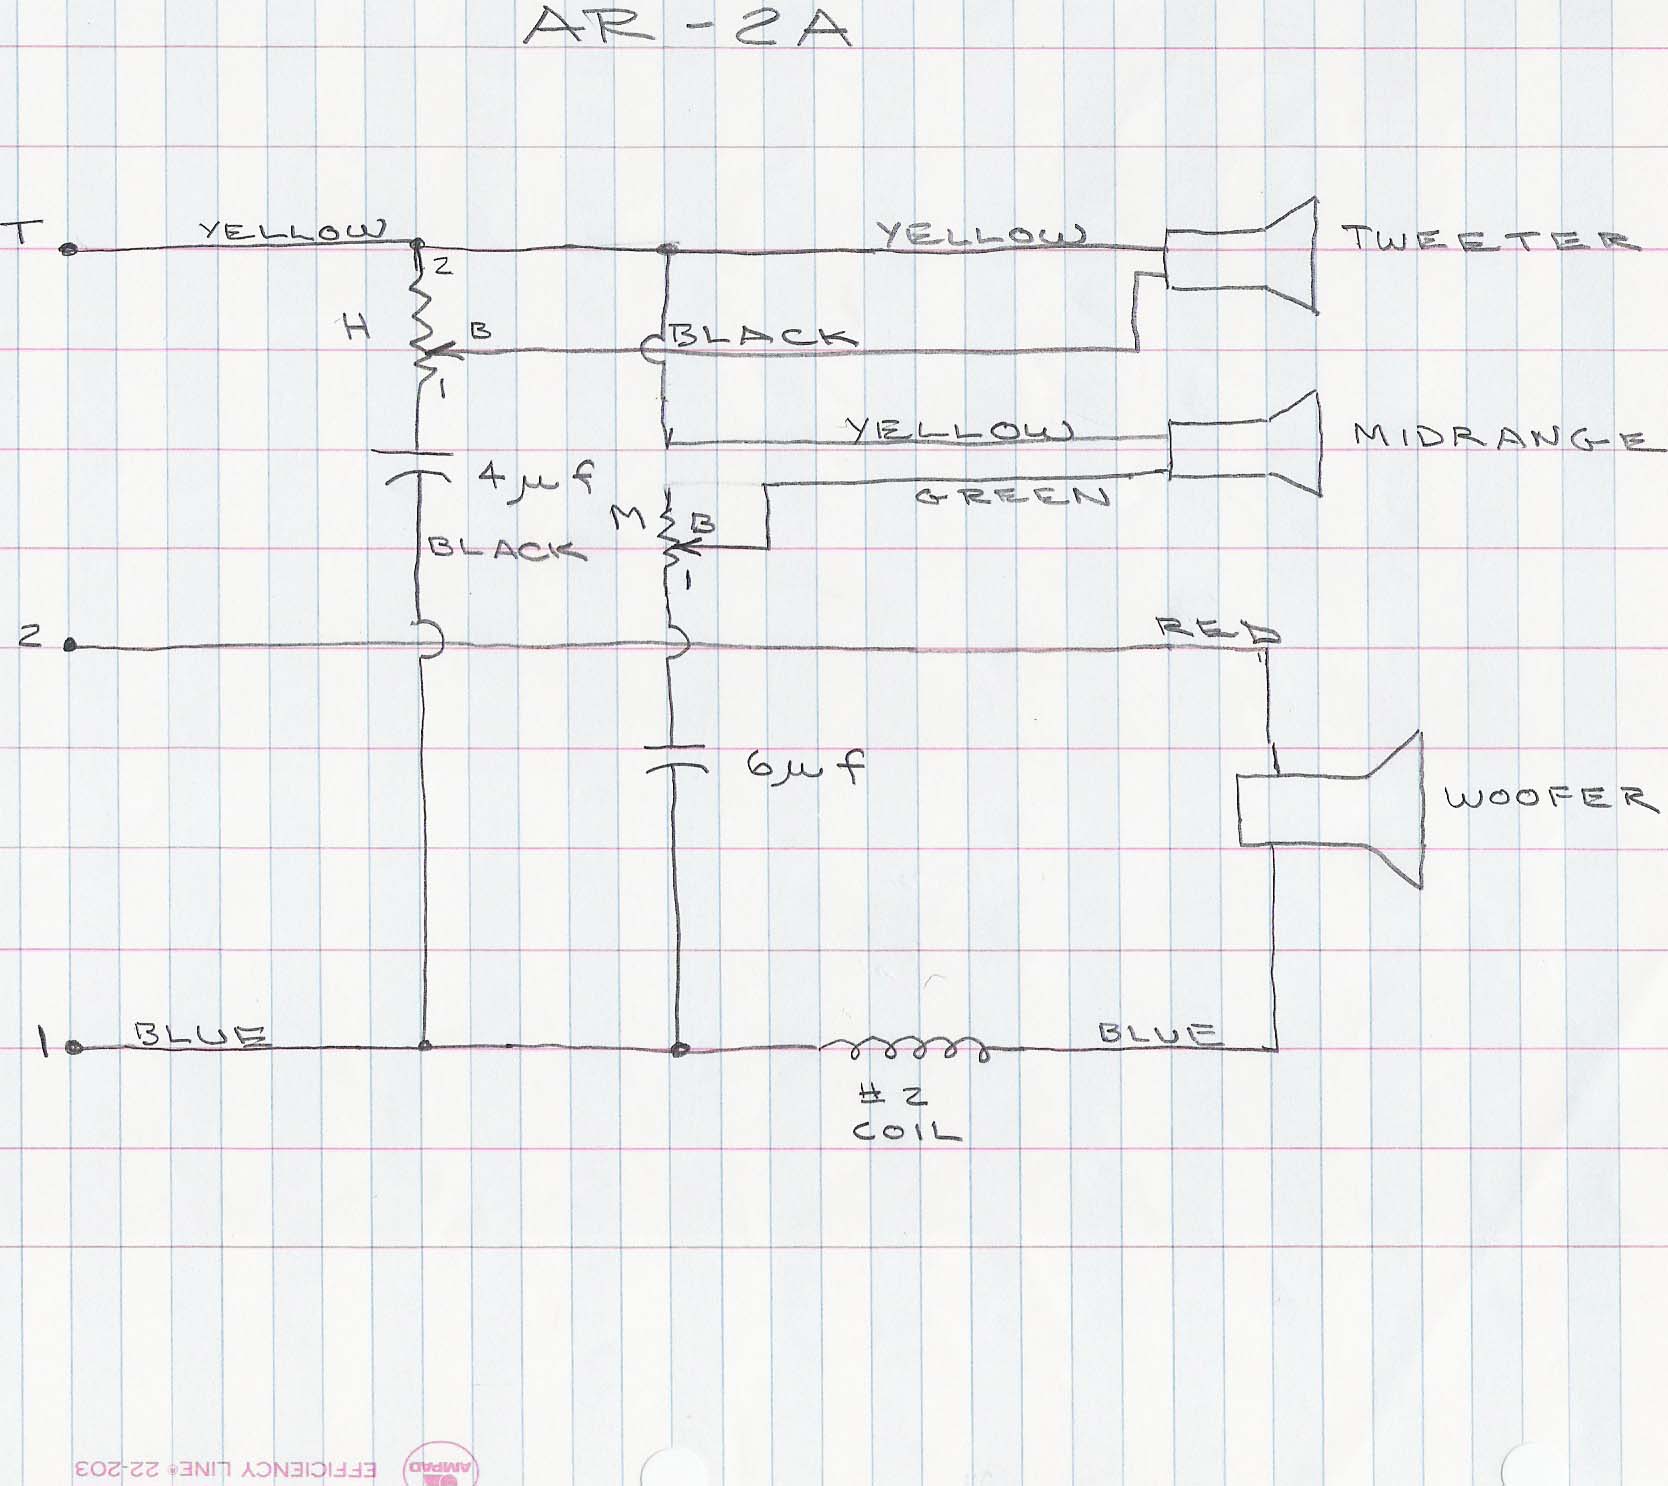 AR-2A
T
YELLOW
YELLOW
TWEETER
2
H
B
BLACK
1
YELLOW
MIDRANGE
4μf
GREEN
M
B
BLACK
1
2
RED
6μf
WOOFER
1
BLUE
BLUE
#2
COIL
EFFICIENCY LINE® 22-203
AMPAD